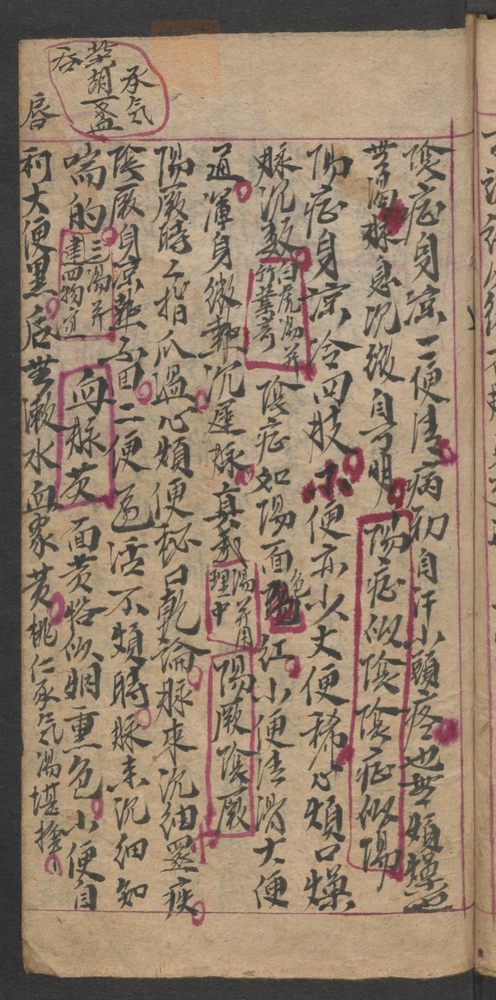 承气
柴胡一盏
吞
陰症身凉二便清病初自汗小頭疼也無煩燥並
無渴脉息沉微自可明陽症似陰陰症似陽
陽症身凉冷四肢小便赤少大便稀心煩口燥
脉沉数白虎湯并竹葉奇陰症如陽面色紅小便清滑大便
通渾身微熱沉遲脉真武湯并用理中陽厥陰厥
陽厥時時指爪温心煩便秘口乾論脉來沉細還疾
陰厥身凉熱不回二便通活不煩時脉来沉细知
喘的三湯并建四物宜血脉黄面黄恰似烟熏色小便自
利大便黑後無漱水血家黄桃仁承气湯堪捨
唇